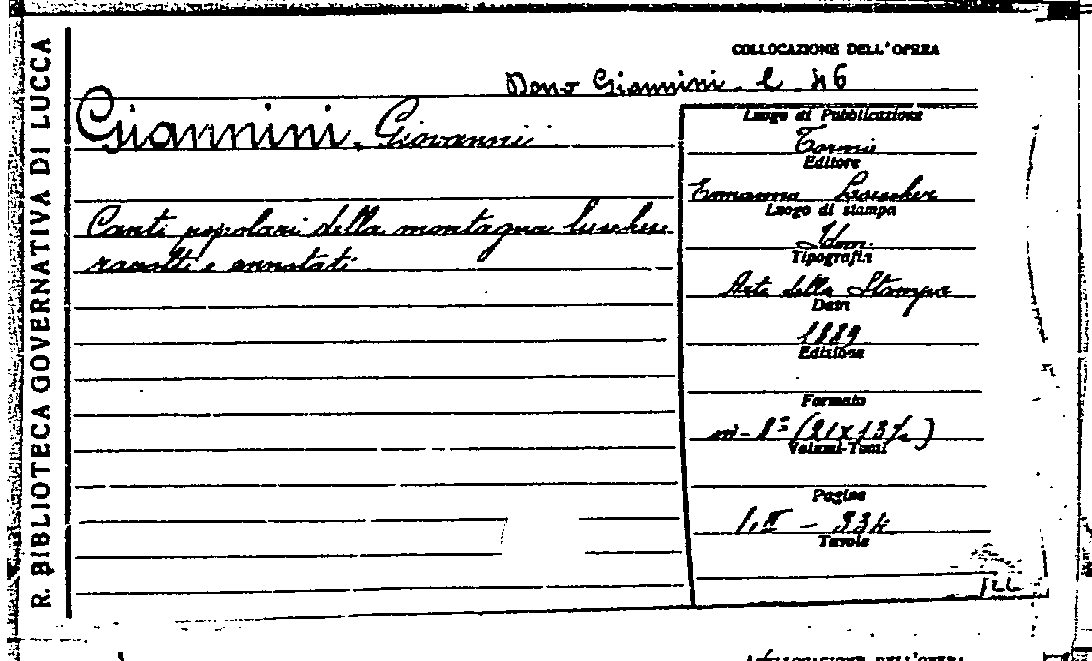 R. BIBLIOTECA GOVERNATIVA DI LUCCA
COLLOCAZIONE DELL'OPERA
Dono Giannini. l. 46
Giannini, Giovanni
Canti popolari della montagna lucchese
raccolti e annotati
Luogo di Pubblicazione
Torino
Editore
Ermanno Loescher
Luogo di stampa
Idem.
Tipografia
Arte della Stampa
Data
1889
Edizione
Formato
in-8° (21x13½)
Volumi-Tomi
Pagine
LII - 334
Tavole
COLLOCAZIONE DELL'OPERA